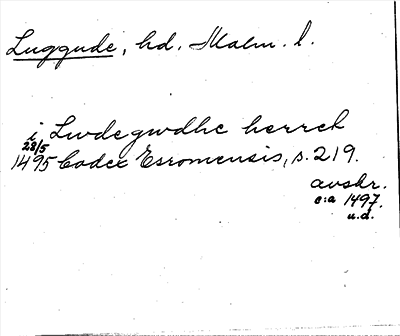 Luggude, hd. Malm. l.
i Lwdegwdhe herreh
28/5
1495 Codex Esromensis, s. 219.
avskr.
c:a 1497.
u.d.